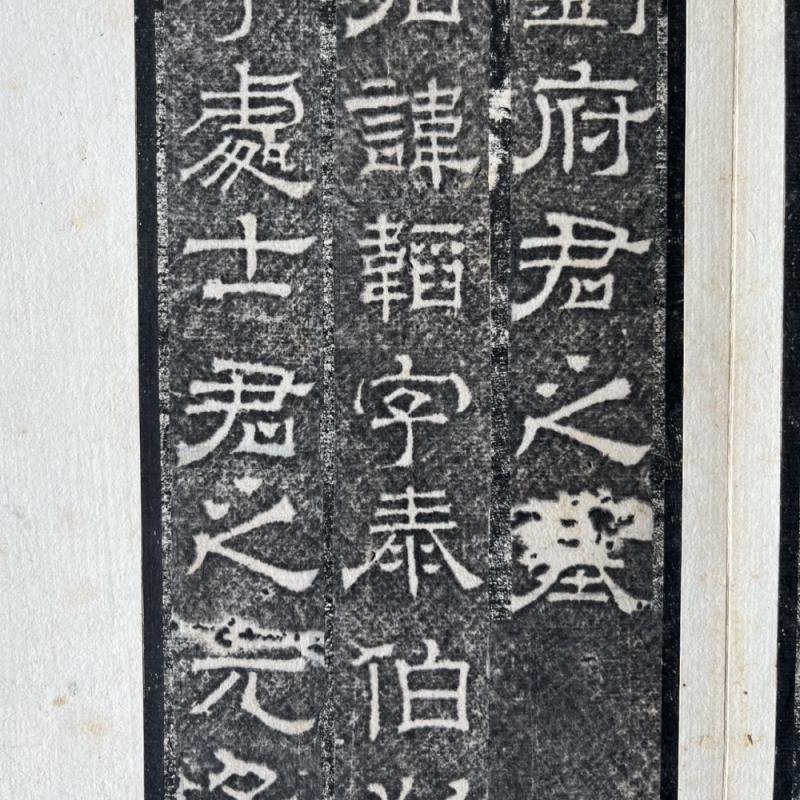 劉府君之墓
諱韜字泰伯
處士君之元